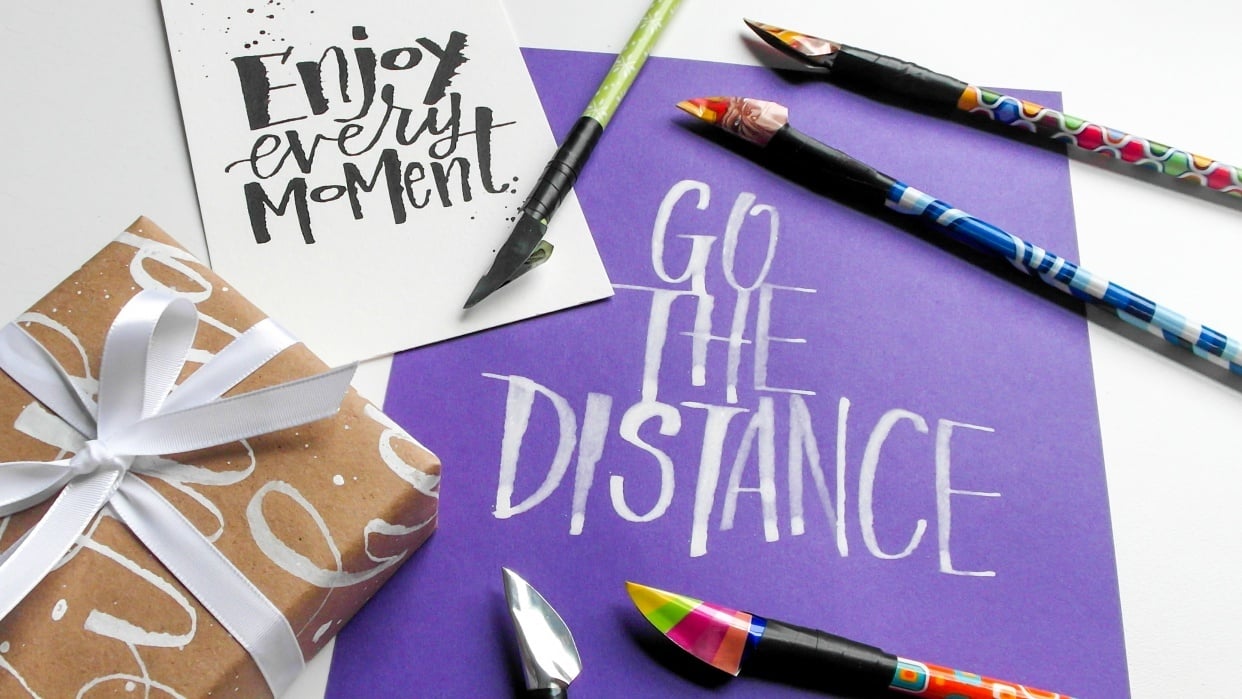 Enjoy
every
Moment.
GO
THE
DISTANCE